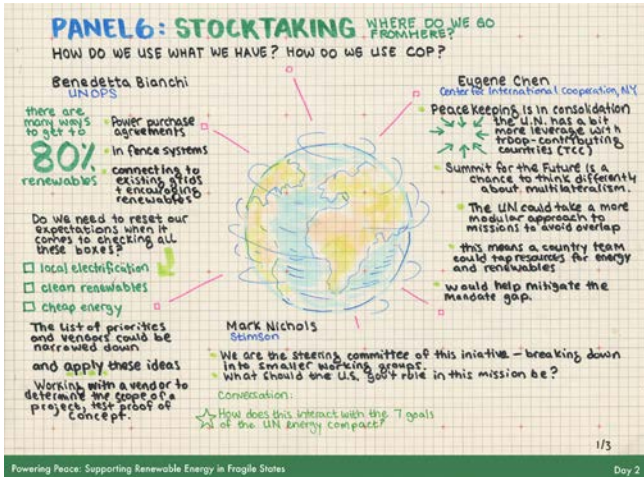 PANEL 6: STOCKTAKING WHERE DO WE GO
FROM HERE?
HOW DO WE USE WHAT WE HAVE? HOW DO WE USE COP?
Benedetta Bianchi
UNOPS
there are
many ways
to get to
80%
renewables
Power purchase
agreements
In fence systems
connecting to
existing grids
+ encouraging
renewables
Do we need to reset our
expectations when it
comes to checking all
these boxes?
local electrification
clean renewables
cheap energy
The list of priorities
and vendors could be
narrowed down
and apply these ideas
Working with a vendor to
determine the scope of a
project, test proof of
concept.
Eugene Chen
Center for International Cooperation, NY
Peacekeeping is in consolidation
the U.N. has a bit
more leverage with
troop-contributing
countries (TCC)
Summit for the Future is a
chance to think differently
about multilateralism.
The UN could take a more
modular approach to
missions to avoid overlap
this means a country team
could tap resources for energy
and renewables
would help mitigate the
mandate gap.
Mark Nichols
Stimson
We are the steering committee of this iniative – breaking down
into smaller working groups.
What should the U.S. gov't role in this mission be?
Conversation:
How does this interact with the 7 goals
of the UN energy compact?
1/3
Powering Peace: Supporting Renewable Energy in Fragile States
Day 2